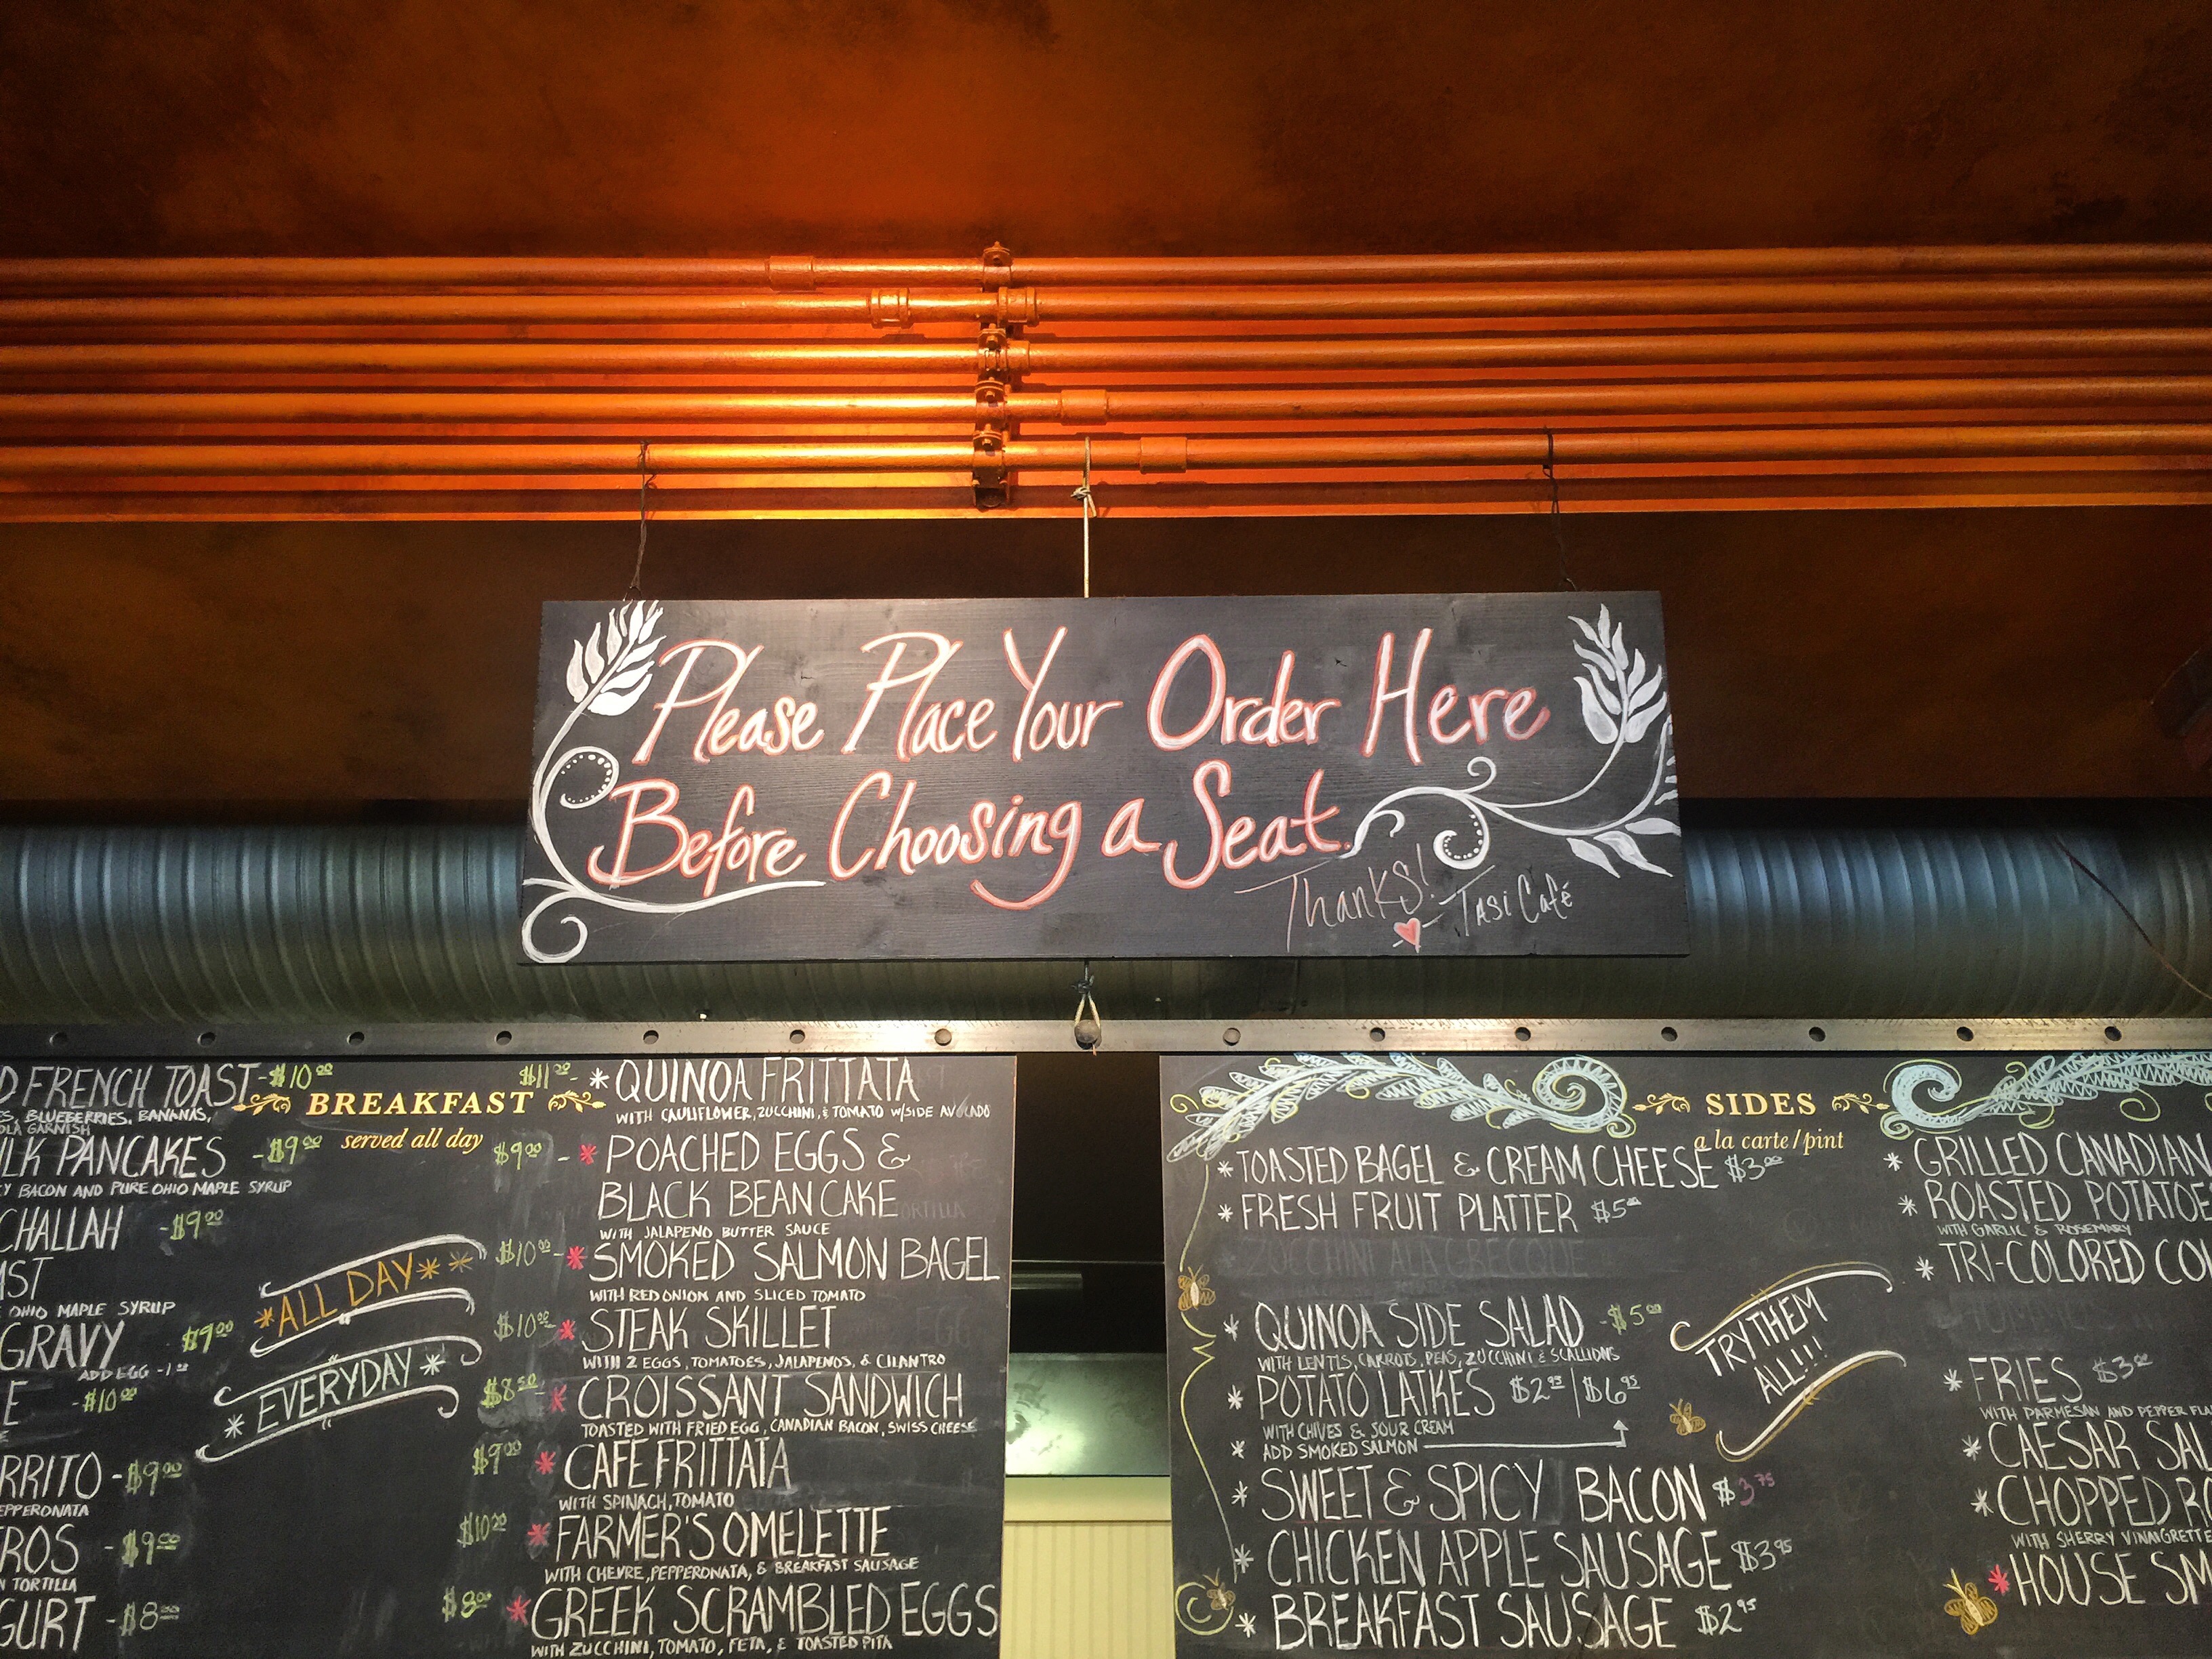 Please Place Your Order Here
Before Choosing a Seat.
Thanks!
Tasi Café
FRENCH TOAST - $10.00
BLUEBERRIES, BANANAS,
GARNISH
PANCAKES - $9.00
BACON AND PURE OHIO MAPLE SYRUP
CHALLAH - $9.00
OHIO MAPLE SYRUP
GRAVY $9.00
ADD EGG - 1.00
- $10.00
- $9.00
PEPPERONATA
- $9.00
TORTILLA
- $8.00
BREAKFAST
served all day
*ALL DAY**
*EVERYDAY*
$11.00 - *QUINOA FRITTATA
WITH CAULIFLOWER, ZUCCHINI, & TOMATO W/SIDE AVOCADO
$9.00 - *POACHED EGGS &
BLACK BEAN CAKE
WITH JALAPENO BUTTER SAUCE
$10.00 - *SMOKED SALMON BAGEL
WITH RED ONION AND SLICED TOMATO
$10.00 - *STEAK SKILLET
WITH 2 EGGS, TOMATOES, JALAPENOS, & CILANTRO
$8.50 - *CROISSANT SANDWICH
TOASTED WITH FRIED EGG, CANADIAN BACON, SWISS CHEESE
$9.00 *CAFE FRITTATA
WITH SPINACH, TOMATO
$10.00 *FARMER'S OMELETTE
WITH CHEVRE, PEPPERONATA, & BREAKFAST SAUSAGE
$8.00 *GREEK SCRAMBLED EGGS
WITH ZUCCHINI, TOMATO, FETA, & TOASTED PITA
SIDES
a la carte/pint
*TOASTED BAGEL & CREAM CHEESE $3.00
*FRESH FRUIT PLATTER $5.00
ZUCCHINI ALA GRECQUE
*QUINOA SIDE SALAD - $5.00
WITH LENTLS, CARROTS, PEAS, ZUCCHINI & SCALLIONS
*POTATO LATKES $2.95 | $6.95
WITH CHIVES & SOUR CREAM
*ADD SMOKED SALMON
*SWEET & SPICY BACON $3.75
*CHICKEN APPLE SAUSAGE $3.95
*BREAKFAST SAUSAGE $2.95
TRY THEM
ALL!!!
*GRILLED CANADIAN
*ROASTED POTATOES
WITH GARLIC & ROSEMARY
*TRI-COLORED
*FRIES $3.00
WITH PARMESAN AND PEPPER
*CAESAR
*CHOPPED
WITH SHERRY VINAIGRETTE
*HOUSE